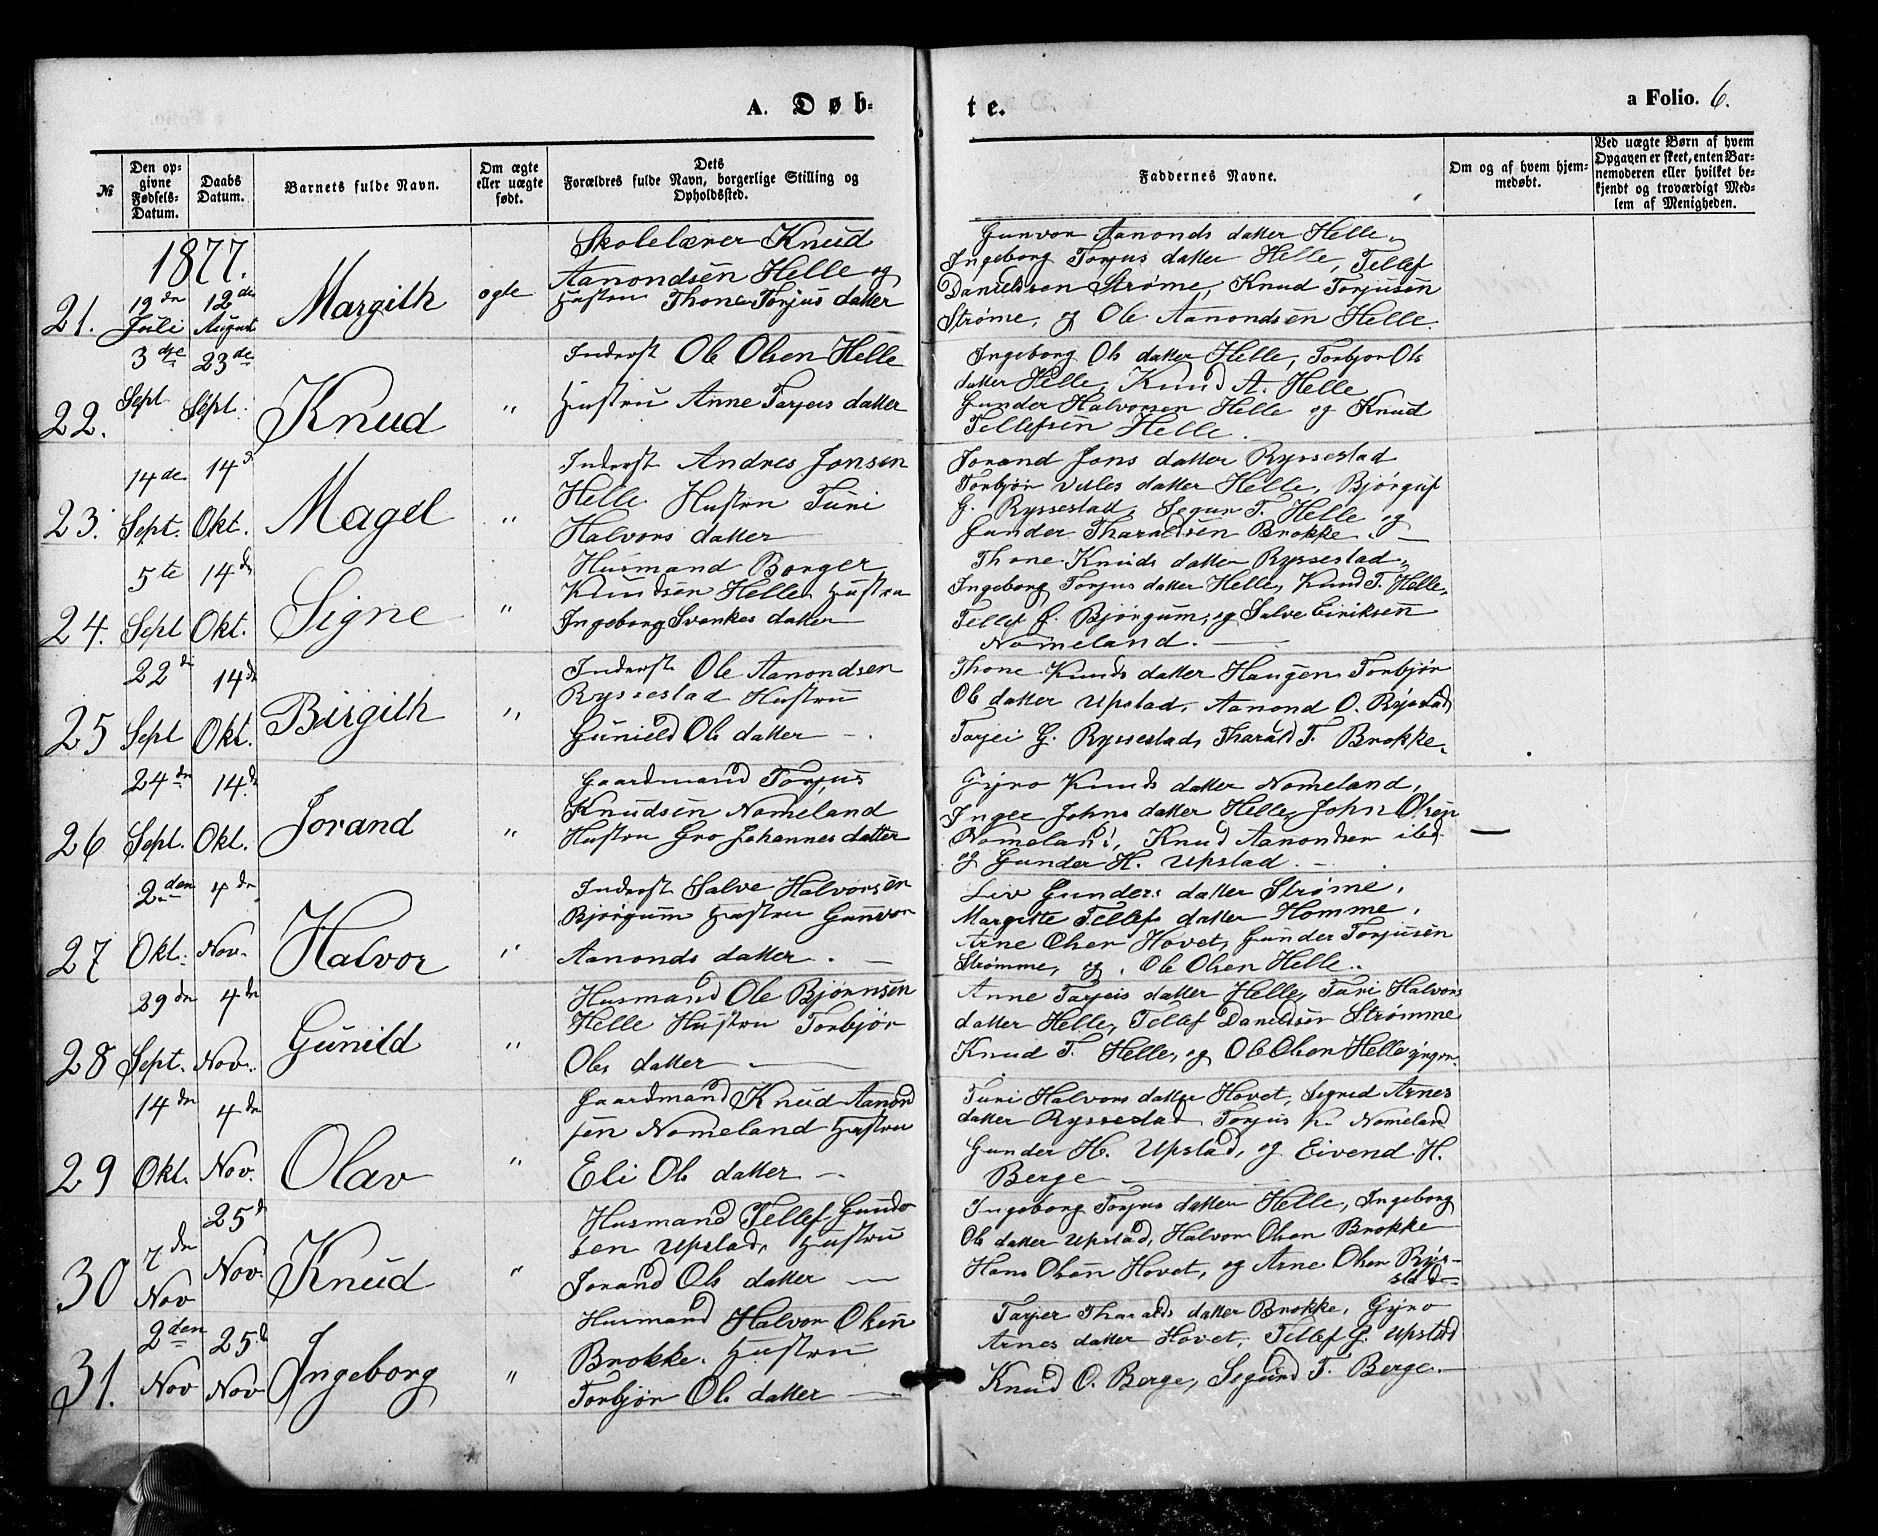 A. Døb-
te.
a Folio. 6.
№
Den op-
givne
Fødsels-
Datum.
Daabs
Datum.
Barnets fulde Navn.
Om ægte
eller uægte
født.
Dets
Forældres fulde Navn, borgerlige Stilling og
Opholdssted.
Faddernes Navne.
Om og af hvem hjem-
medøbt.
Ved uægte Børn af hvem
Opgaven er skeet, enten Bar-
nemoderen eller hvilket be-
kjendt og troværdigt Med-
lem af Menigheden.
1877.
21.
19de
Juli
12de
August
Margith
ogte
Skolelærer Knud
Aanondsen Helle og
Hustru Thone Torjus datter
Gunvor Aanonds datter Helle,
Ingeborg Torjus datter Helle, Tellef
Danielssen Strøme, Knud Torjusen
Strøme, og Ole Aanondsen Helle.
22.
3dje
Sept
23de
Sept.
Knud
"
Inderst Ole Olsen Helle
Hustru Anne Tarjeis datter
Ingeborg Ols datter Helle, Torbjor Ols
datter Helle, Knud A. Helle
Gunder Halvorsen Helle og Knud
Tellefsen Helle.
23.
14de
Sept.
14d
Okt.
Magel
"
Inderst Andres Jonsen
Helle Hustru Turi
Halvors datter
Jorand Jons datter Ryssestad
Torbjør datter Helle, Bjørguf
G. Ryssestad, Segur T. Helle og
Gunder Tharaldsen Brokke. —
24.
5te
Sept
14de
Okt.
Signe
"
Husmand Borger
Knudsen Helle, Hustru
Ingeborg Svenkes datter
Thone Knuds datter Ryssestad,
Ingeborg Torjus datter Helle, Knud T. Helle,
Tellef G. Bjørgum, og Salve Eiriksen
Nomeland. —
25
22d
Sept
14de
Okt.
Birgith
"
Inderst Ole Aanondsen
Ryssestad Hustru
Gunield Ols datter — .
Thone Knuds datter Haugen, Torbjør
Ols datter Upstad, Aanond O. Rysstad,
Tarjei G. Ryssestad, Tharald T. Brokke,
26
24de
Sept.
14d.
Okt.
Jorand
"
Gaardmand Torjus
Knudsen Nomeland
Hustru Gro Johannes datter
Gyro Knuds datter Nomeland,
Inger Johns datter Helle, John Olsen
Nomeland, Knud Aanondsen ibd
og Gunder H. Upstad. —
27
2den
Okt.
4de
Nov.
Halvor
"
Inderst Salve Halvorsen
Bjørgum Hustru Gunvor
Aanonds datter. —
Liv Gunders datter Strøme,
Margitte Tellefs datter Homme,
Arne Olsen Hovet, Gunder Torjusen
Strømme, og, Ole Olsen Helle.
28
29de
Sept.
4de
Nov.
Gunild
"
Husmand Ole Bjørnsen
Helle Hustru Torbjør
Ols datter —
Anne Tarjeis datter Helle, Turi Halvors
datter Helle, Tellef Danielsen Strømme
Knud T. Helle, og Ole Olsen Helle
29
14de
Okt.
4de
Nov.
Olav
"
Gaardmand Knud Aanond
sen Nomeland Hustru
Eli Ols datter —
Turi Halvors datter Hovet, Segned Arnes
datter Ryssestad Torjus Kn Nomeland
Gunder H. Upstad, og Eivend H.
Berge —
30
7de
Nov
25d
Nov.
Knud
"
Husmand Tellef Gundo
sen Upstad, Hustru
Jorand Ols datter —
Ingeborg Torjus datter Helle, Ingeborg
Ols datter Upstad, Halvor Olsen Brokke
Hans Olsen Hovet, og Arne Olsen Rys-
stad —
31.
2den
Nov
25d
Nov
Ingeborg
"
Husmand Halvor Olsen
Brokke. Hustru
Torbjør Ols datter —
Tharalds datter Brokke, Gyro
Arnes datter Hovet, Tellef G. Upstad
Knud O. Berge, Segurd T. Berge. —